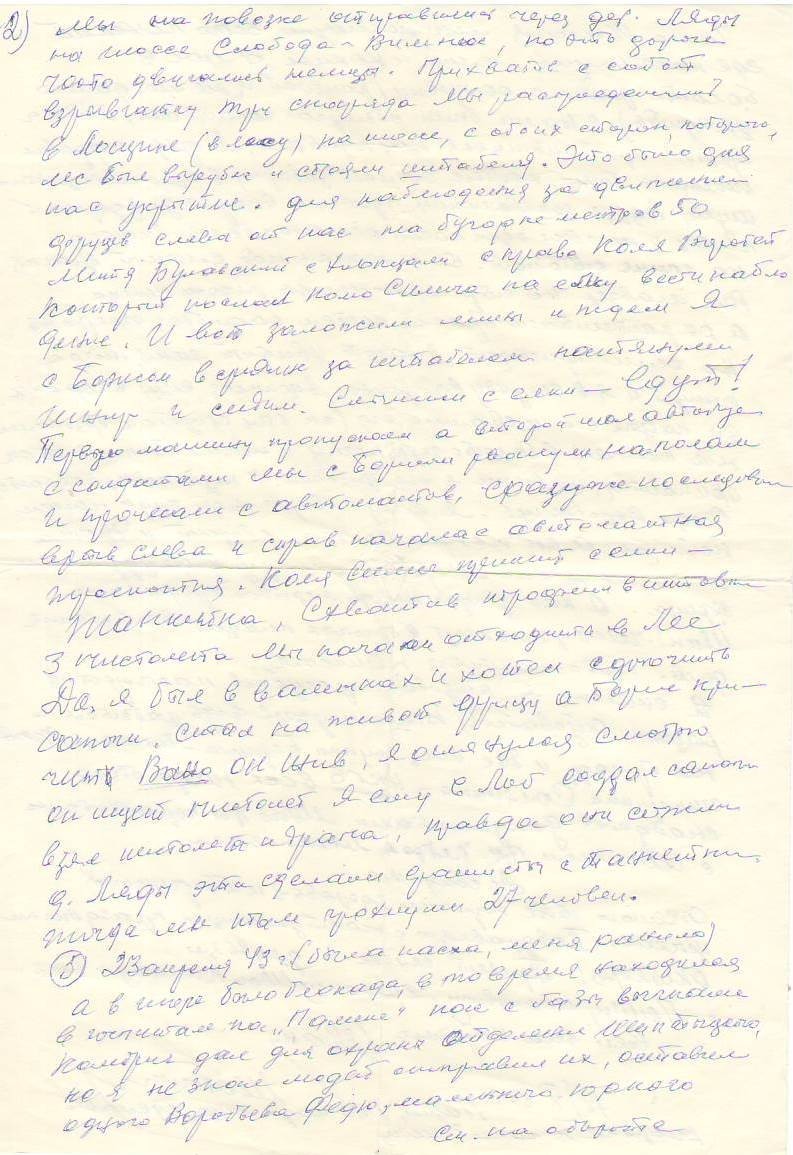 2) Мы на повозке отправились через дер. Ляды
на шоссе Слобода – , по эть дороге
часто двигались немцы. Прихватив с собой
взрывчатку три снаряда Мы распределились
в Лощине (в лесу) на шоссе, с обоих сторон, которого,
лес был вырублен и стояли штабеля. Это было для
нас укрытие. Для наблюдения за движением
слева от нас на бугорке метров 50
Митя Булавский с хлопцами с права Коля Воробей
который послал Колю на елку вести наблю
дение. И вот заложили мины и ждем Я
с Борисом в средине за штабелем натянули
шнур и сидим. с елки – Едут!
Первую машину пропускаем а второй шол автобус
с солдатами мы с Борисом напополам
и прочесали с автоматов, сразуже последовал
взрыв слева и справ началас автоматная
. Коля с елки –
танкетка, Схватив трофеи винтовки
3 пистолета Мы начали отходить в Лес
Да, я был в валенках и хотел сдрючить
сапоги. стал на живот фрицу а Борис кри–
чить Вано он жив, я оглянулся смотрю
он ищет пистолет я ему в Лоб содрал сапоги
взял пистолет и драпа, правда они сожгли
д. Ляды эти сделали фашисты с танкетки,
тогда мы там грохнули 27 человек.
(5) 23 апреля 43 г. (была пасха, меня ранило)
а в было блокада, в то время находился
в госпитале на „Палике" нас с базы
Комбриг дал для охраны отделение ,
но я не знал людей отправил их, оставил
одного Воробьева Федю, маленького юркого
См. на обороте